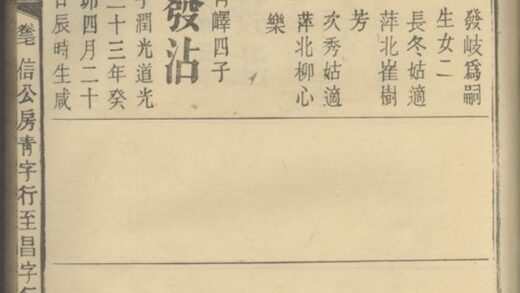 發岐為嗣
生女二
長冬姑適
萍北崔樹
芳
次秀姑適
萍北柳心
樂
發沾
嶧四子
潤光道光
二十三年癸
卯四月二十
日辰時生咸
信公房青字行至昌字